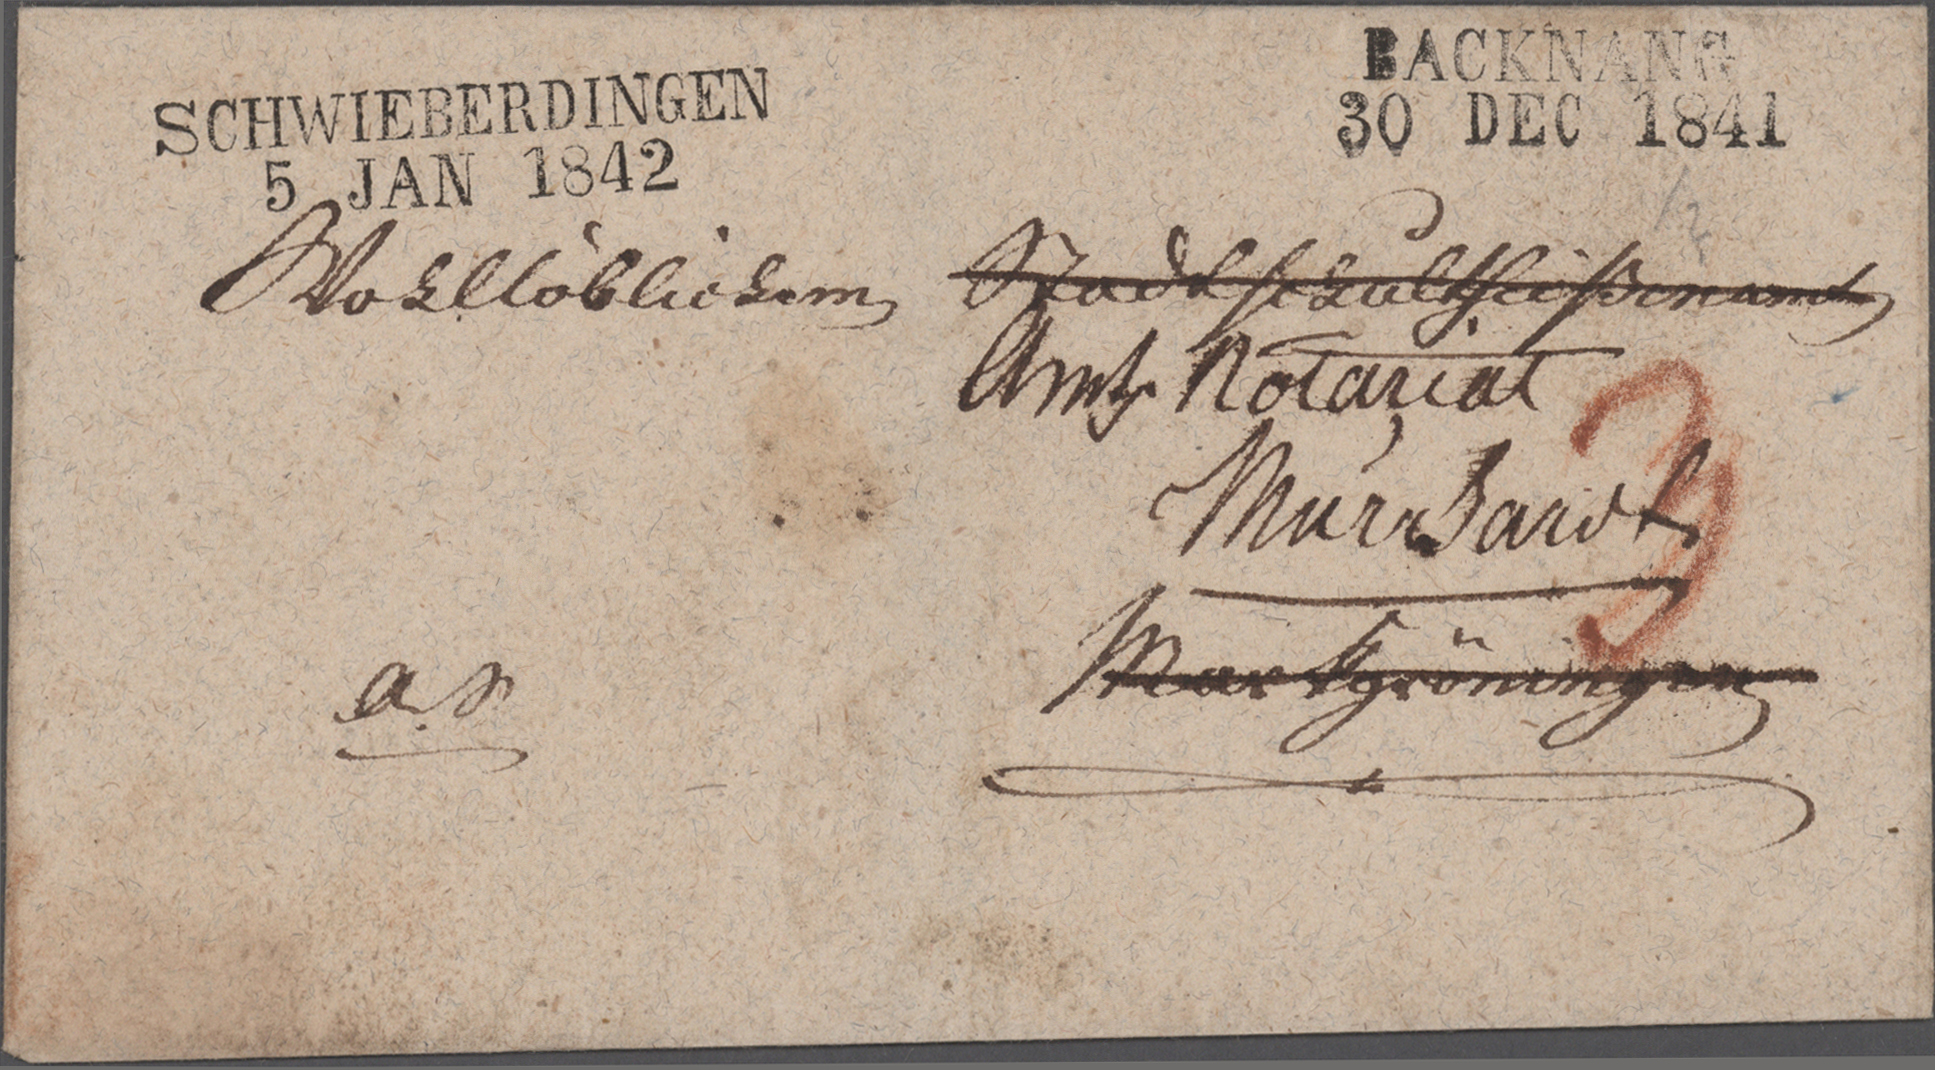 SCHWIEBERDINGEN
5 JAN 1842
BACKNANG
30 DEC 1841
Wohllöblichem Stadtschultheißenamt
Amts Notariat
Murrhardt
Markgröningen